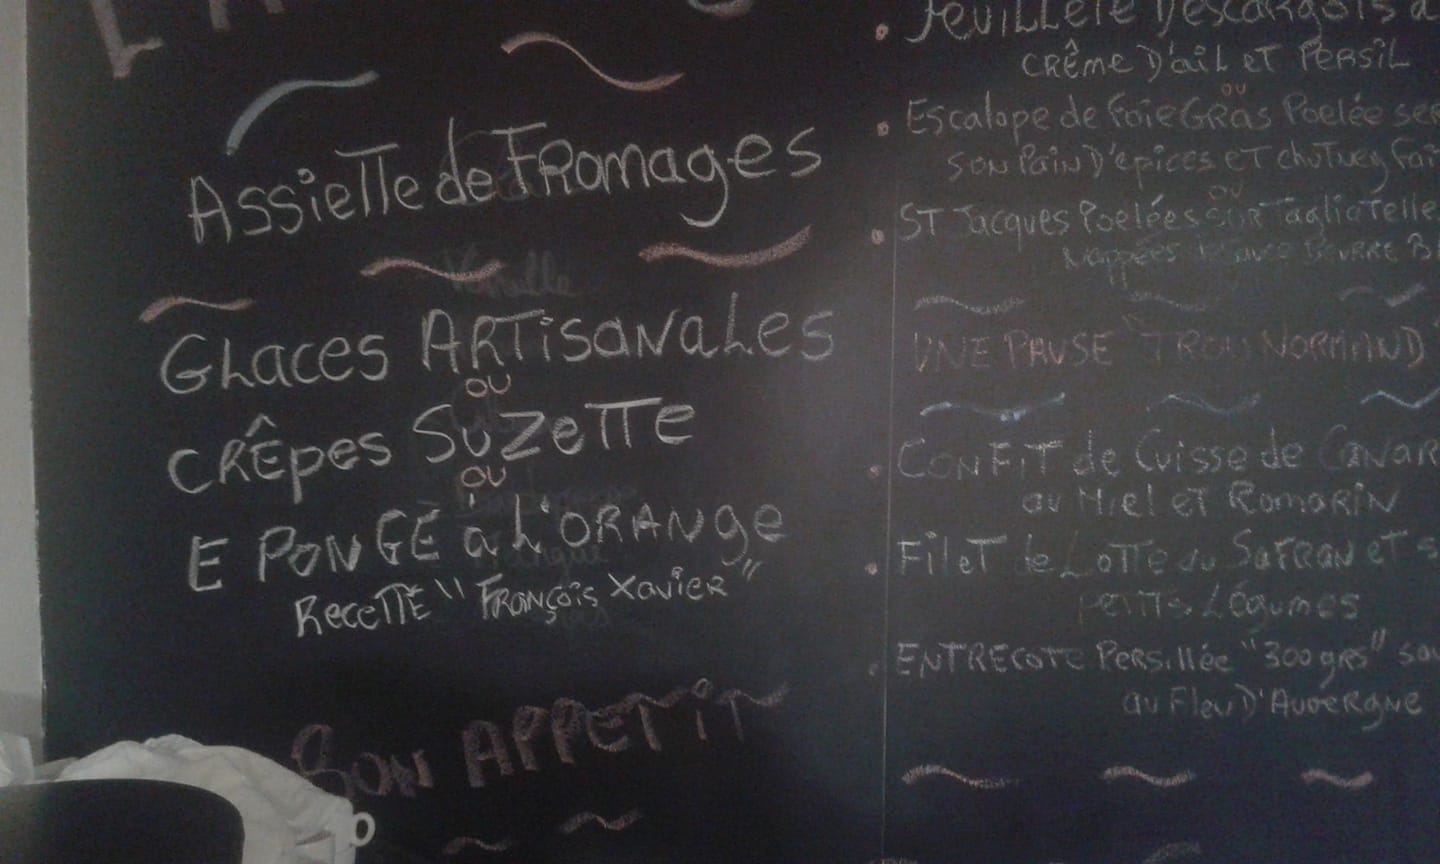 Assiette de Fromages
Glaces Artisanales
ou
Crêpes Suzette
ou
Epongé à l'orange
Recette "François Xavier"
Bon Appetit
• Feuilleté D'escargots à
Crême D'ail et Persil
ou
• Escalope de Foie Gras Poelée
son Pain D'épices et chutney
ou
• St Jacques Poelées sur Tagliatelle
Nappées Beurre
Une Pause "Trou Normand"
• Confit de Cuisse de
au Miel et Romarin
• Filet de Lotte au Safran et
petits Légumes
• Entrecote Persillée "300grs"
au Bleu D'Auvergne